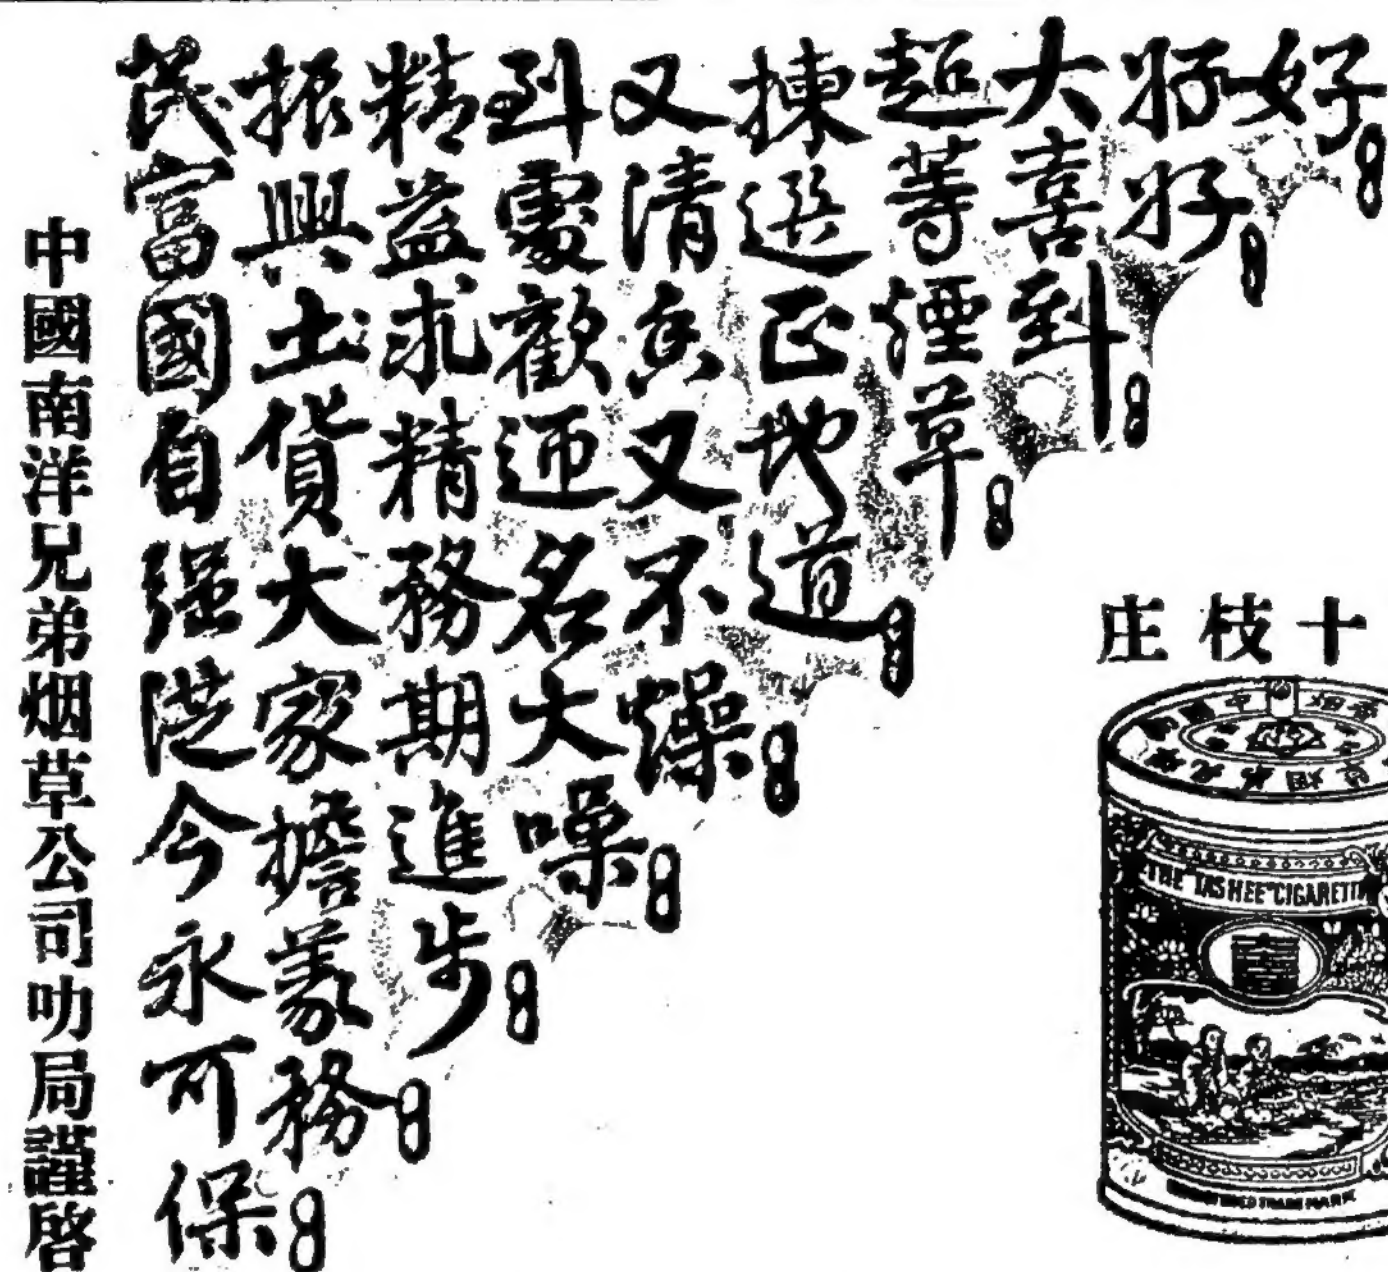 好
好
大喜到
超等煙草
揀選正地道
又清香又不燥
到處歡迎名大噪
精益求精務期進步
振興土貨大家擔義務
民富國自强從今永可保
中國南洋兄弟烟草公司叻局謹啓
十枝庄
THE "TASHEE" CIGARETTE
TRADE MARK